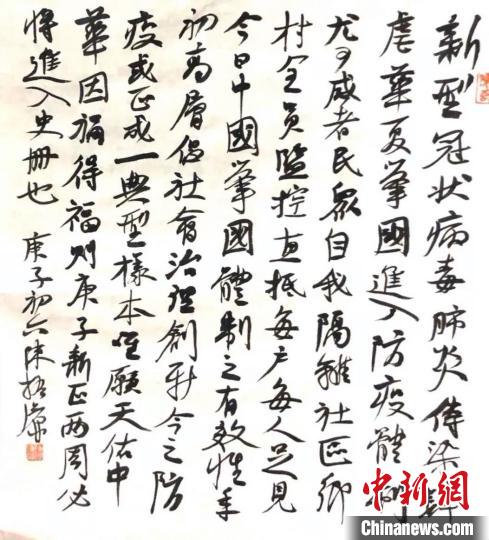 新型冠状病毒肺炎傳染肆
虐華夏舉國進入防疫體制
尤可威者民眾自我隔離社區鄉
村全員監控直抵每户每人足見
今日中國舉國體制之有效性年
初高層倡社會治理創新今之防
疫或正成一典型樣本唯願天佑中
華因禍得福则庚子新正两周必
將進入史册也 庚子初六陈
中新网
Chinanews.com